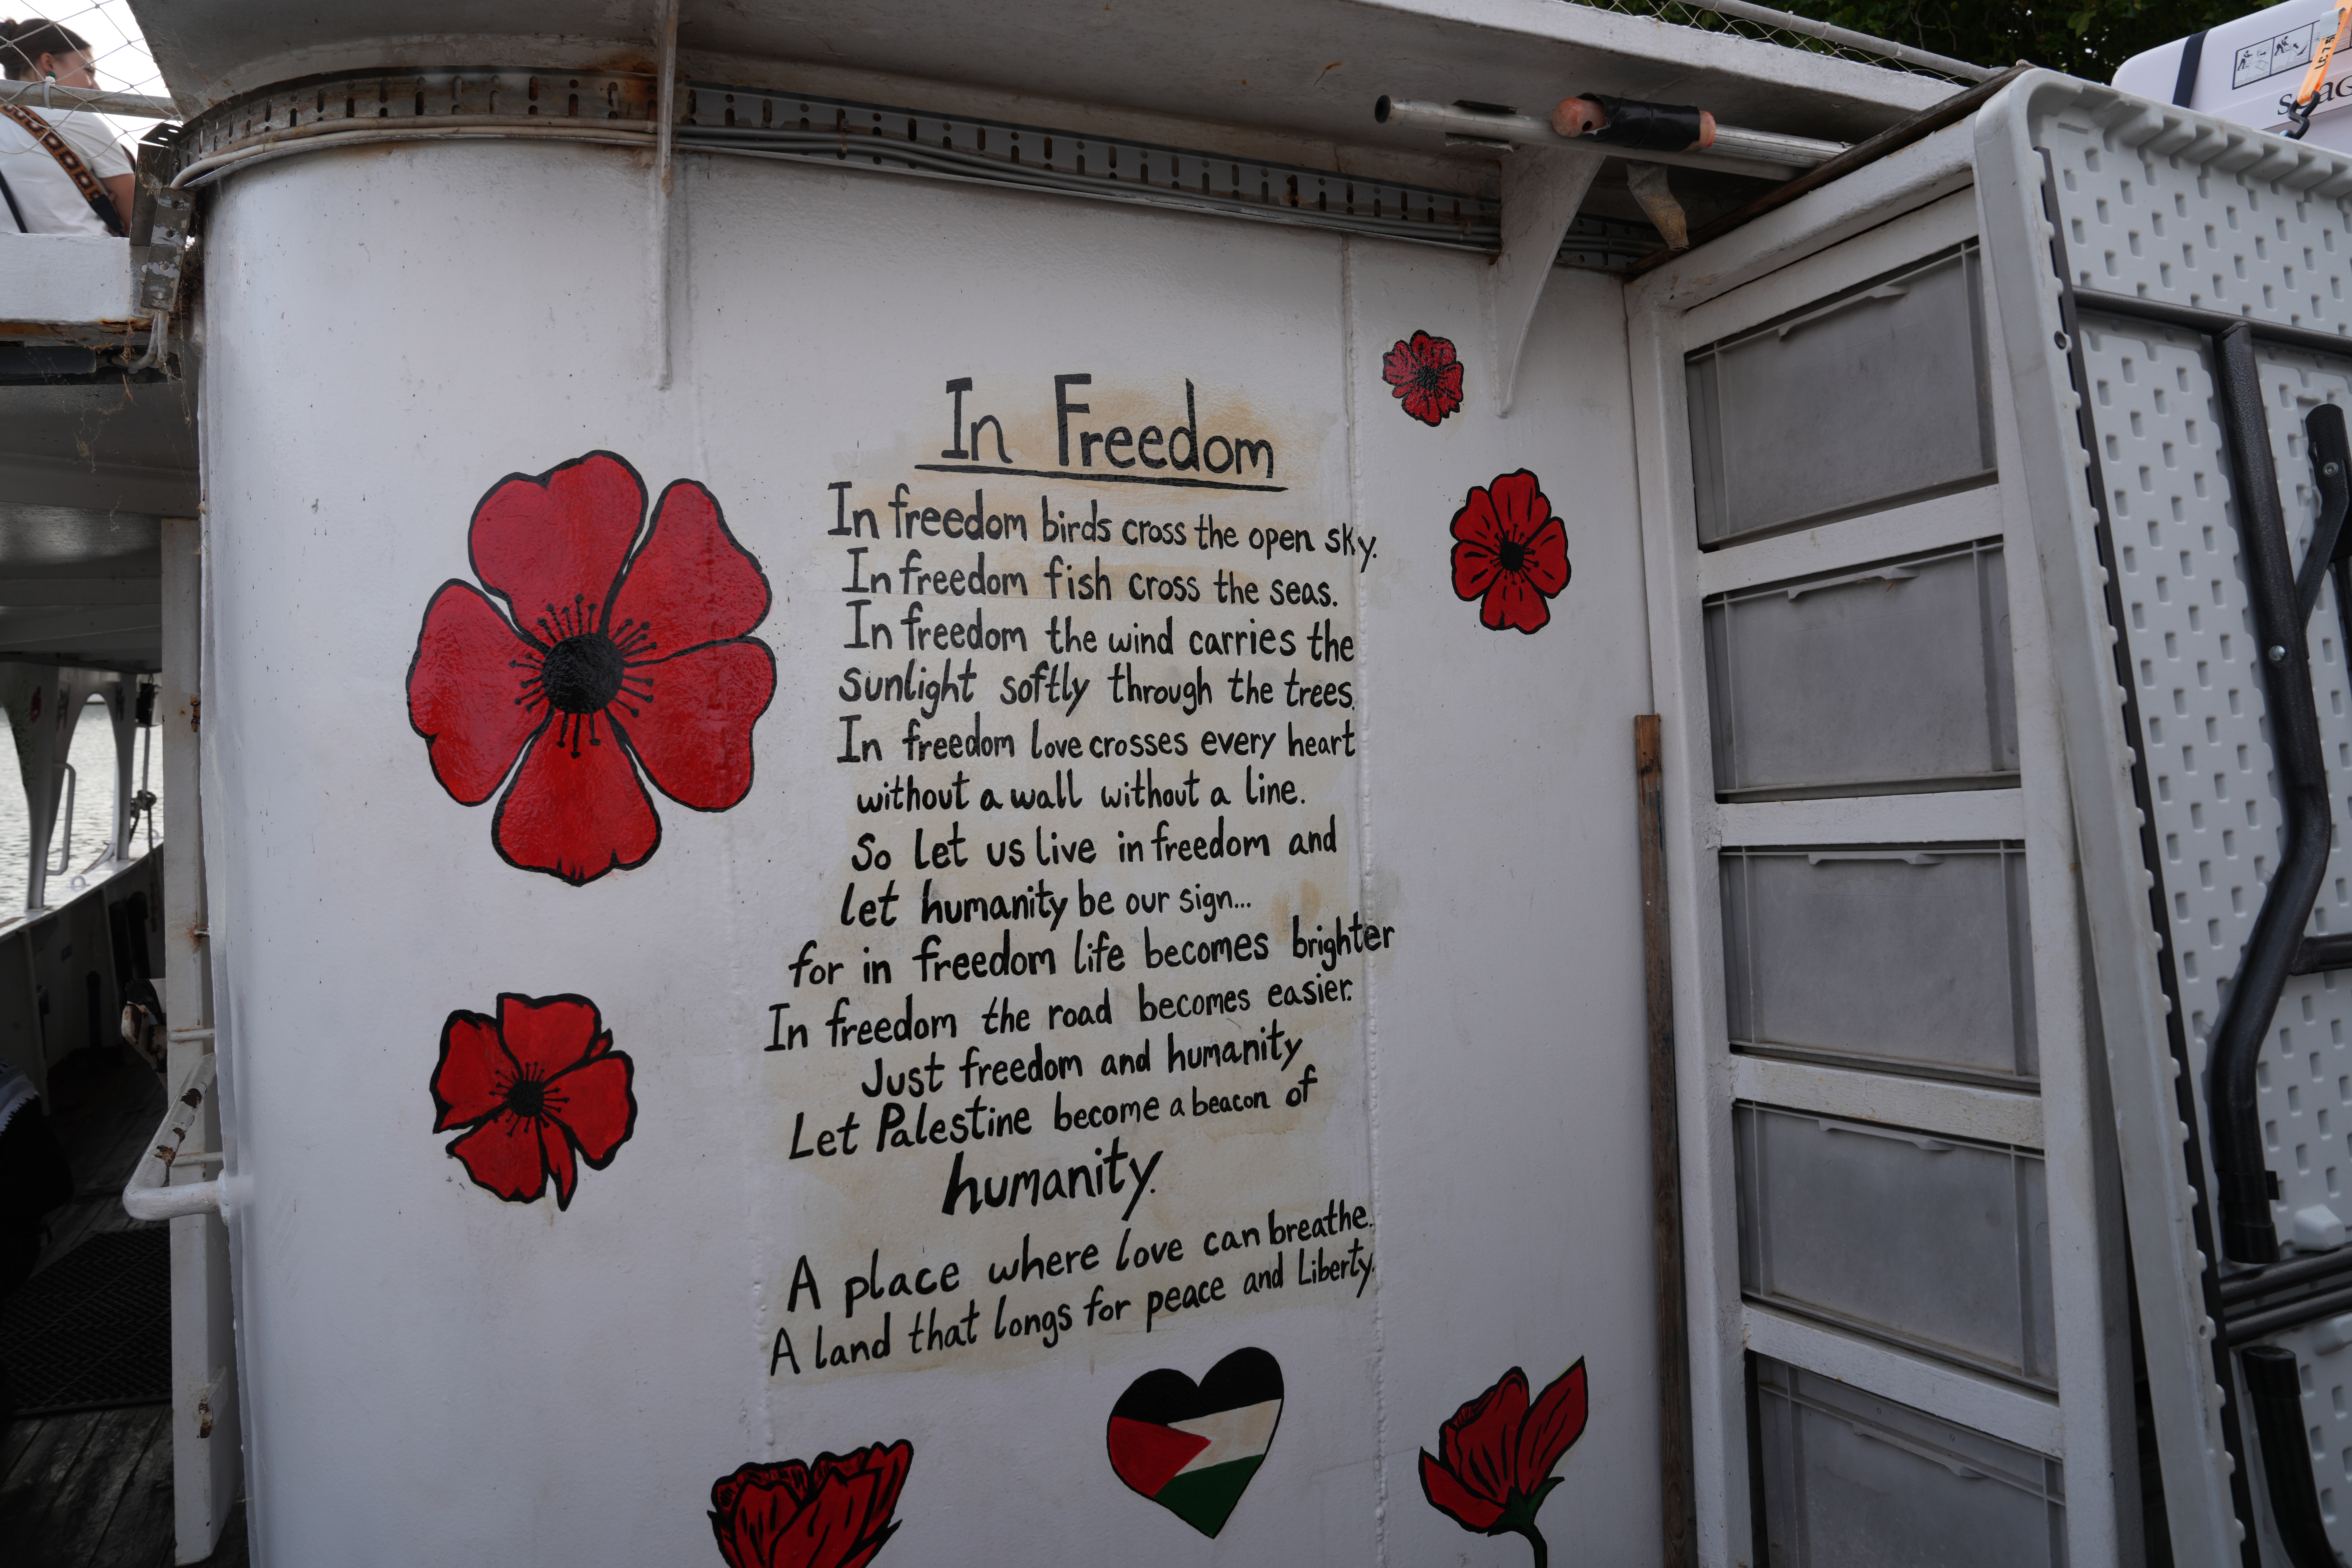 In Freedom
In freedom birds cross the open sky.
In freedom fish cross the seas.
In freedom the wind carries the
sunlight softly through the trees.
In freedom love crosses every heart
without a wall without a line.
So let us live in freedom and
let humanity be our sign...
for in freedom life becomes brighter
In freedom the road becomes easier.
Just freedom and humanity
Let Palestine become a beacon of
humanity.
A place where love can breathe.
A land that longs for peace and Liberty.